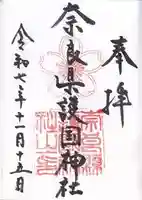 奉拝
奈良県護国神社
令和七年十一月十五日